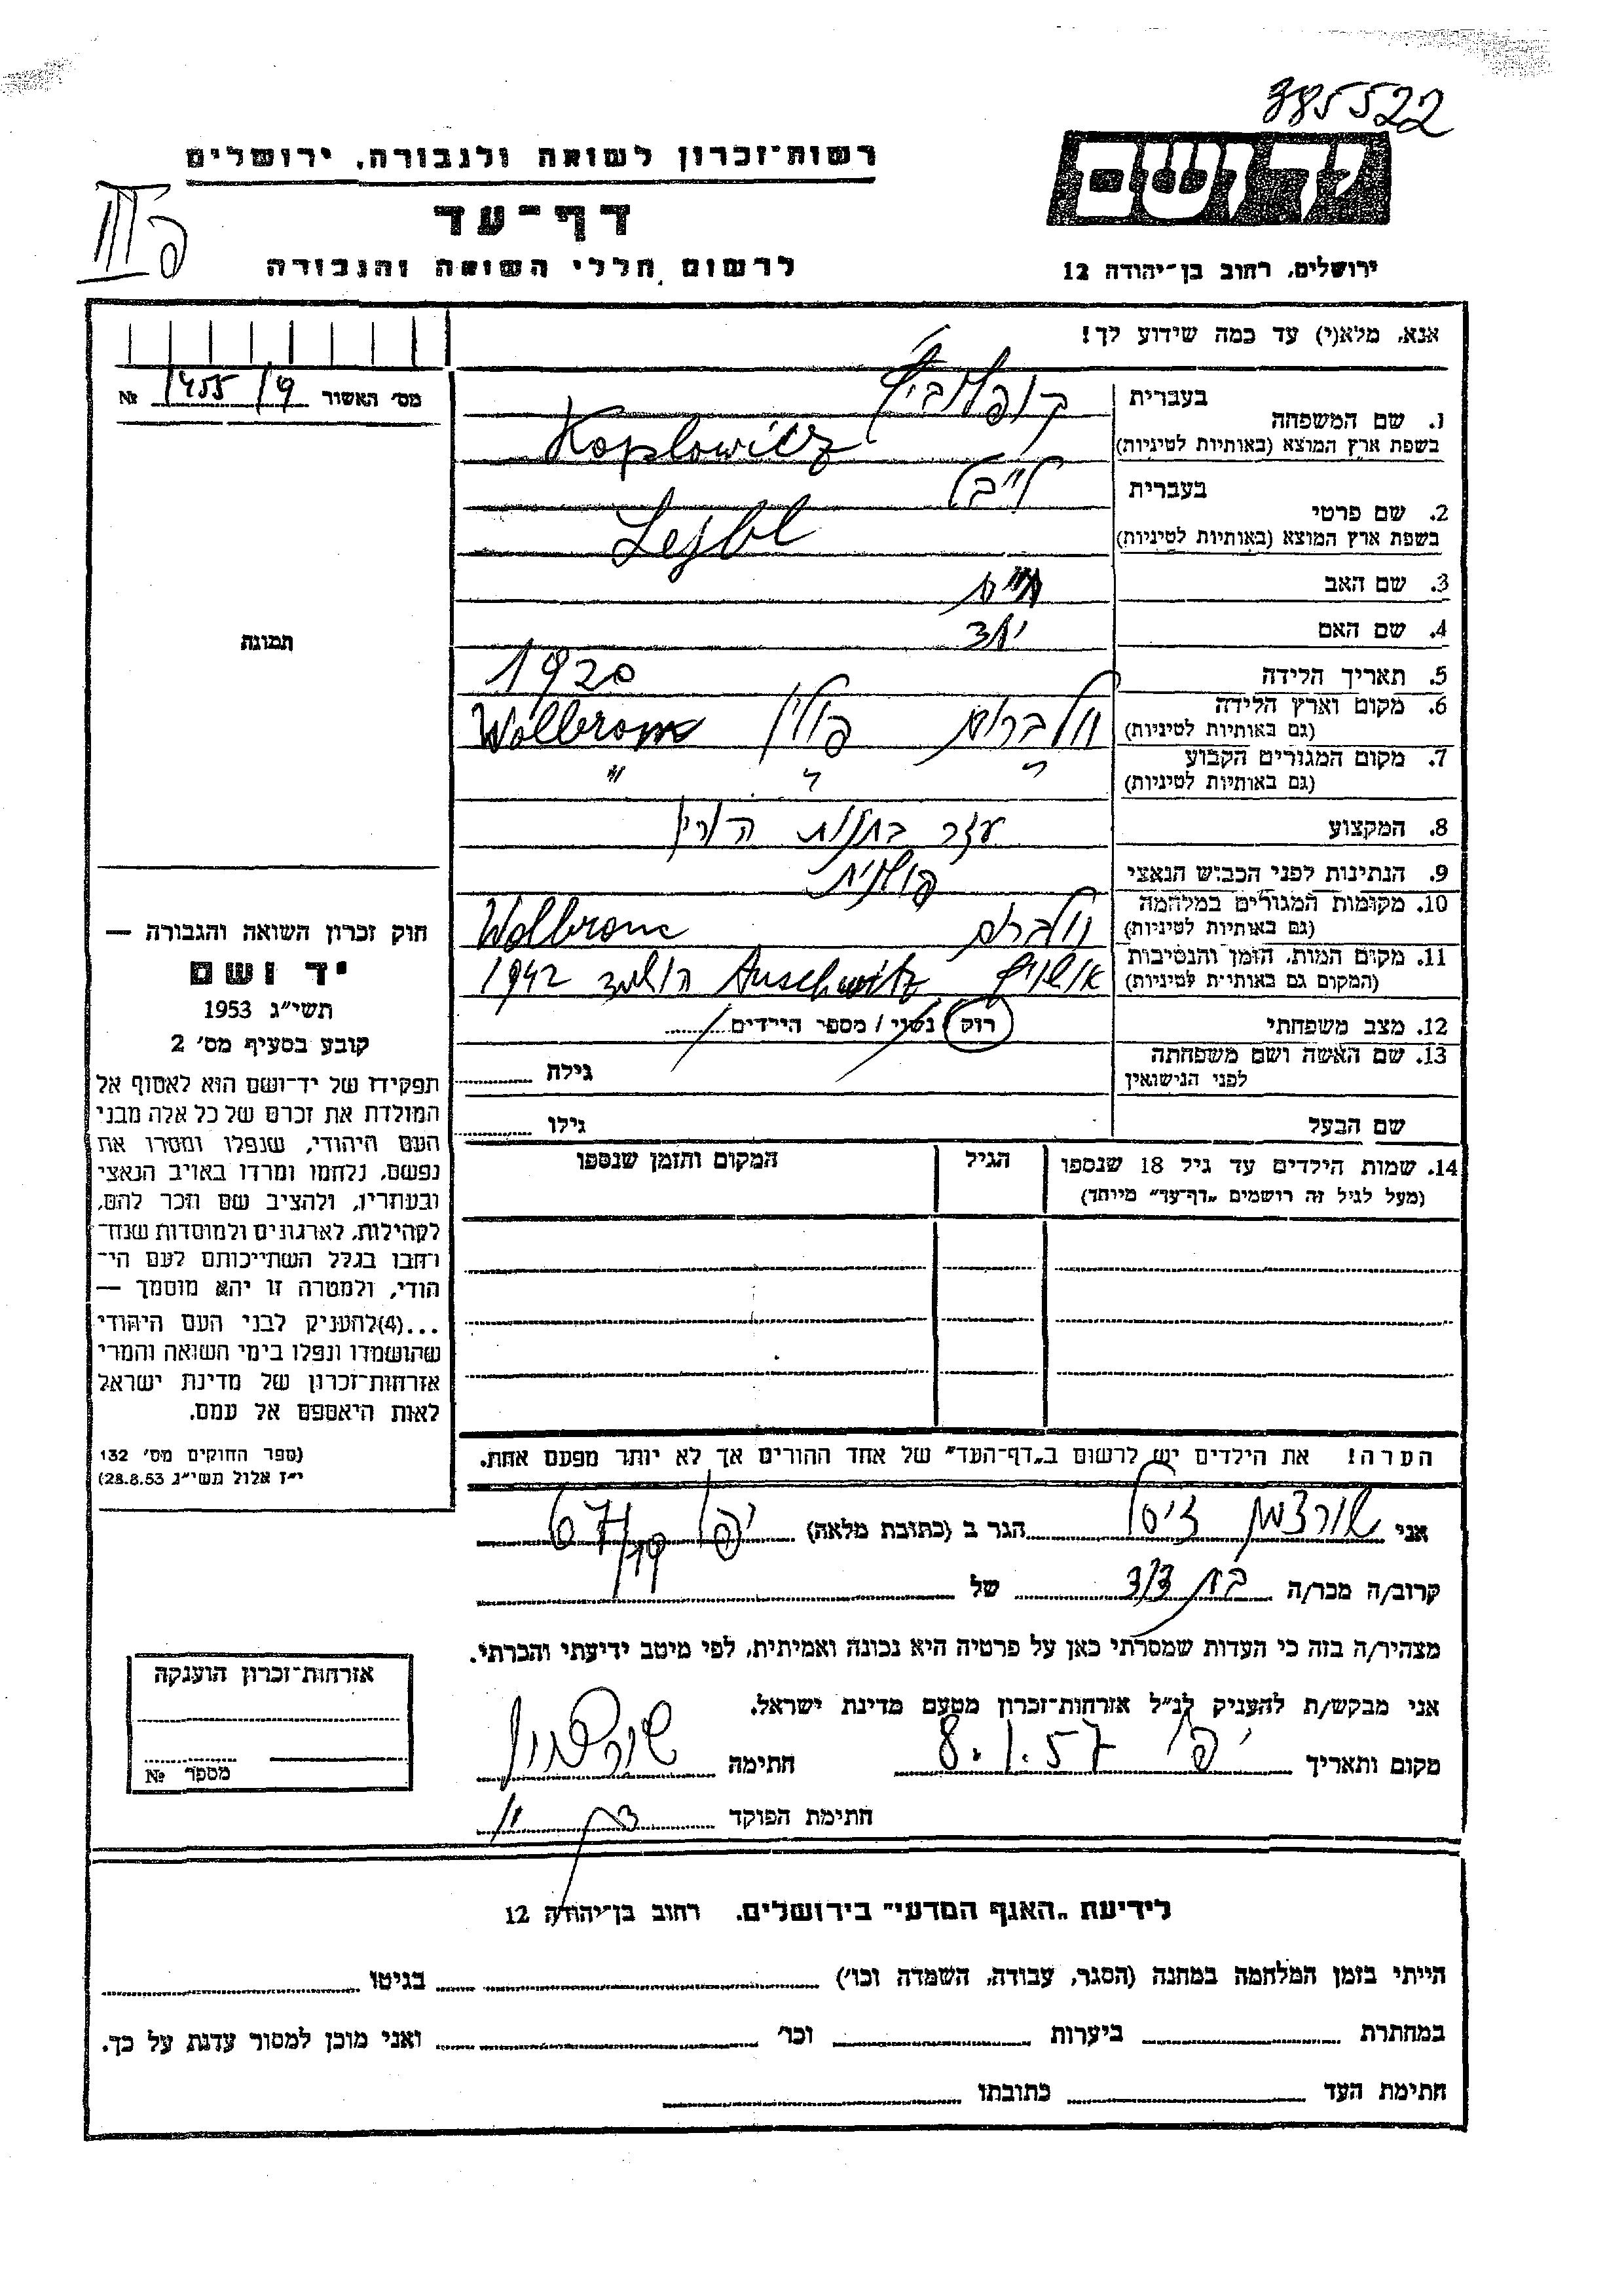 385522
יד ושם
רשות־זכרון לשואה ולגבורה, ירושלים
דף־עד
לרשום חללי השואה והגבורה
ירושלים, רחוב בן־יהודה 12
אנא, מלא(י) עד כמה שידוע לך!
מס׳ האשור № 1455/9
1. שם המשפחה
בעברית קופלוביץ
בשפת ארץ המוצא (באותיות לטיניות) Koplowicz
2. שם פרטי
בעברית לייבל
בשפת ארץ המוצא (באותיות לטיניות) Lejbl
3. שם האב חיים
4. שם האם
5. תאריך הלידה 1920
6. מקום וארץ הלידה (גם באותיות לטיניות) וולברום פולין Wolbrom
7. מקום המגורים הקבוע (גם באותיות לטיניות) " " "
8. המקצוע עזר בחנות הורין
9. הנתינות לפני הכבוש הנאצי פולנית
10. מקומות המגורים במלחמה (גם באותיות לטיניות) וולברום Wolbrom
11. מקום המות, הזמן והנסיבות (המקום גם באותיות לטיניות) אושוויץ Auschwitz הושמד 1942
12. מצב משפחתי רווק / נשוי / מספר הילדים
13. שם האשה ושם משפחתה לפני הנישואין גילה
שם הבעל גילו
14. שמות הילדים עד גיל 18 שנספו
(מעל לגיל זה רושמים „דף־עד" מיוחד)
הגיל
המקום והזמן שנספו
תמונה
חוק זכרון השואה והגבורה —
יד ושם
תשי״ג 1953
קובע בסעיף מס׳ 2
תפקידו של יד־ושם הוא לאסוף אל
המולדת את זכרם של כל אלה מבני
העם היהודי, שנפלו ומסרו את
נפשם, נלחמו ומרדו באויב הנאצי
ובעוזריו, ולהציב שם וזכר להם,
לקהילות, לארגונים ולמוסדות שנח־
רבו בגלל השתייכותם לעם הי־
הודי, ולמטרה זו יהא מוסמך —
...(4) להעניק לבני העם היהודי
שהושמדו ונפלו בימי השואה והמרי
אזרחות־זכרון של מדינת ישראל
לאות היאספם אל עמם.
(ספר החוקים מס׳ 132
י״ז אלול תשי״ג 28.8.53)
הערה! את הילדים יש לרשום ב„דף־העד" של אחד ההורים אך לא יותר מפעם אחת.
אני שורצמן הגר ב (כתובת מלאה) יפו
קרוב/ה מכר/ה בת דוד של
מצהיר/ה בזה כי העדות שמסרתי כאן על פרטיה היא נכונה ואמיתית, לפי מיטב ידיעתי והכרתי.
אני מבקש/ת להעניק לנ״ל אזרחות־זכרון מטעם מדינת ישראל.
מקום ותאריך יפו 8.1.57 חתימה
חתימת הפוקד
אזרחות־זכרון הוענקה
מספר №
לידיעת „האגף המדעי" בירושלים, רחוב בן־יהודה 12
הייתי בזמן המלחמה במחנה (הסגר, עבודה, השמדה וכו׳) בגיטו
במחתרת ביערות וכו׳ ואני מוכן למסור עדות על כך.
חתימת העד כתובתו